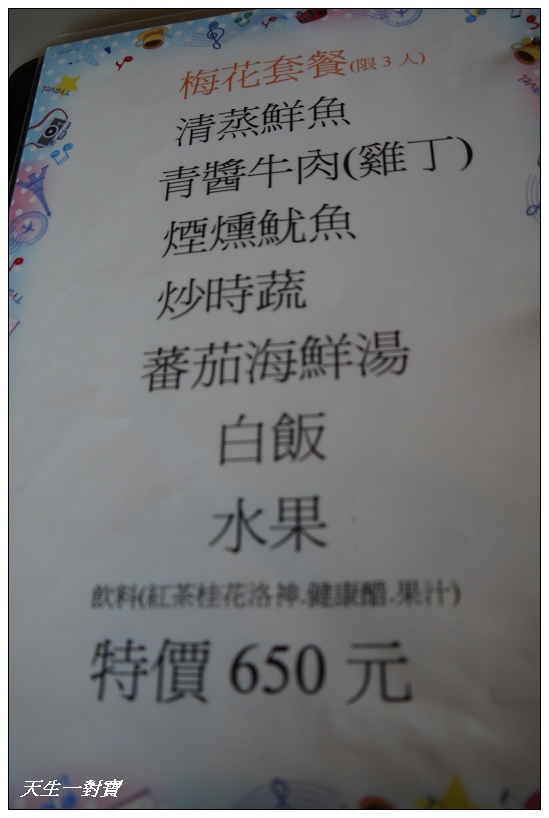 梅花套餐(限3人)
清蒸鮮魚
青醬牛肉(雞丁)
煙燻魷魚
炒時蔬
蕃茄海鮮湯
白飯
水果
飲料(紅茶桂花洛神.健康醋.果汁)
特價 650 元
天生一對寶